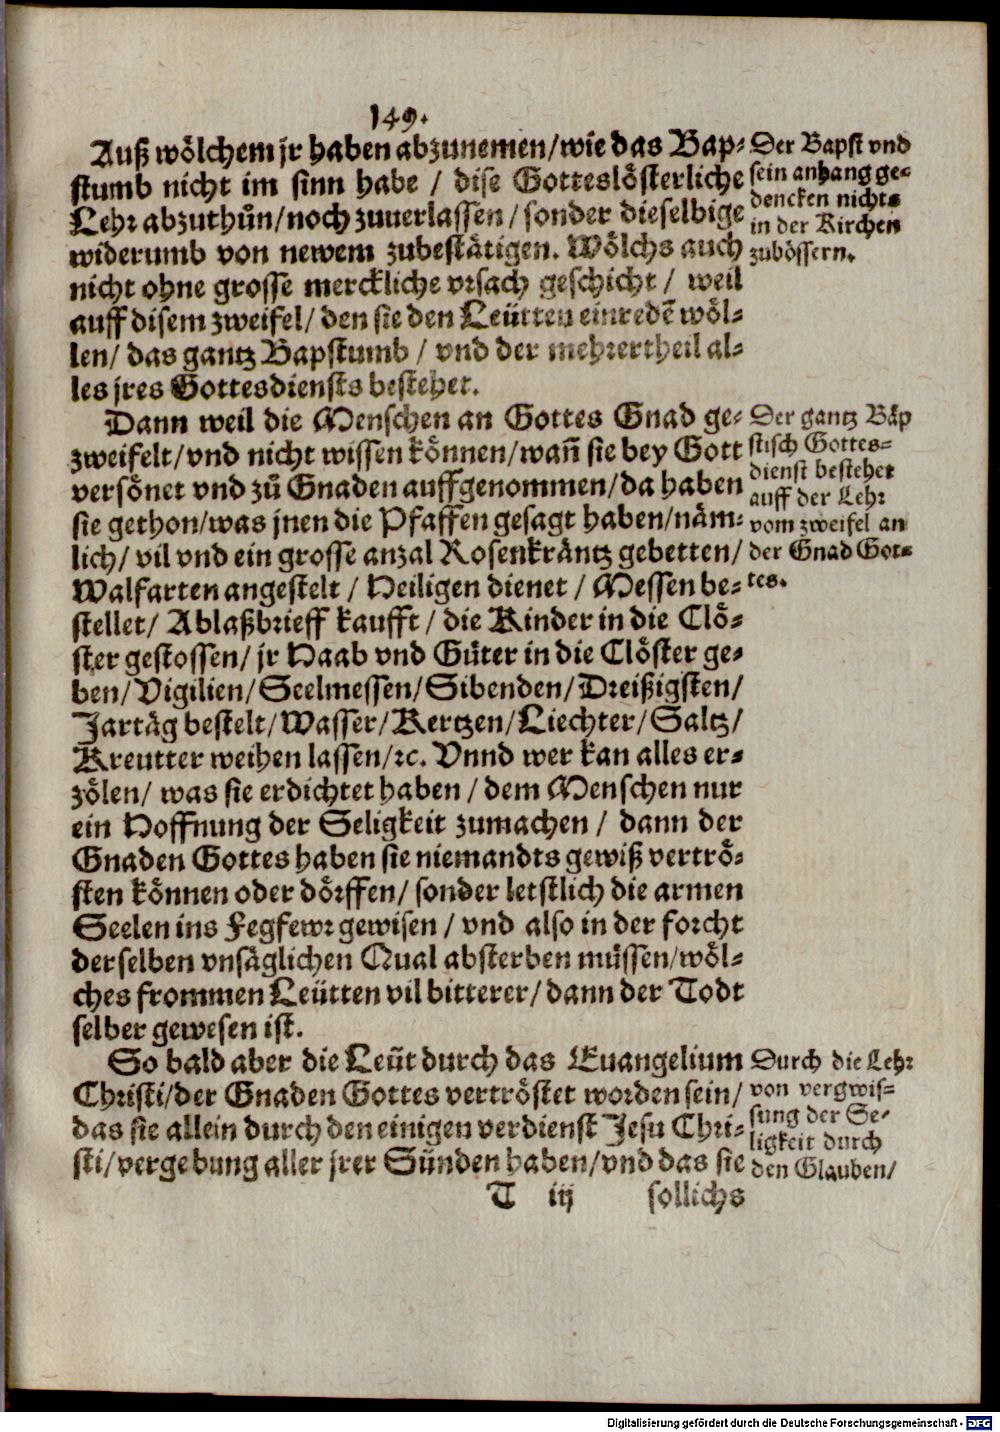 149.
Auß wölchem jr haben abzunemen/wie das Bap-
stumb nicht im sinn habe / dise Gotteslösterliche
Lehr abzuthůn/noch zuuerlassen/sonder dieselbige
widerumb von newem zubestätigen. Wölchs auch
nicht ohne grosse merckliche vrsach geschicht / weil
auff disem zweifel/ den sie den Leütten einredē wöl-
len/ das gantz Bapstumb / vnd der mehrertheil al-
les jres Gottesdiensts bestehet.
Der Bapst vnd
sein anhang ge-
dencken nichts
in der Kirchen
zubössern.
Dann weil die Menschen an Gottes Gnad ge-
zweifelt/vnd nicht wissen können/wañ sie bey Gott
versönet vnd zů Gnaden auffgenommen/da haben
sie gethon/was jnen die Pfaffen gesagt haben/näm-
lich/ vil vnd ein grosse anzal Rosenkräntz gebetten/
Walfarten angestelt / Heiligen dienet / Messen be-
stellet/ Ablaßbrieff kaufft / die Kinder in die Clö-
ster gestossen/ jr Haab vnd Güter in die Clöster ge-
ben/ Vigilien/Seelmessen/Sibenden/Dreißigsten/
Jartäg bestelt/Wasser/Kertzen/Liechter/Saltz/
Kreutter weihen lassen/ꝛc. Vnnd wer kan alles er-
zölen/ was sie erdichtet haben / dem Menschen nur
ein Hoffnung der Seligkeit zumachen / dann der
Gnaden Gottes haben sie niemandts gewiß vertrö-
sten können oder dörffen/ sonder letstlich die armen
Seelen ins Fegfewr gewisen / vnd also in der forcht
derselben vnsäglichen Qual absterben müssen/wöl-
ches frommen Leütten vil bitterer/ dann der Todt
selber gewesen ist.
Der gantz Bäp
stisch Gottes-
dienst bestehet
auff der Lehr
vom zweifel an
der Gnad Got-
tes.
So bald aber die Leüt durch das Euangelium
Christi/der Gnaden Gottes vertröstet worden sein/
das sie allein durch den einigen verdienst Jesu Chri-
sti/vergebung aller jrer Sünden haben/vnd das sie
Durch die Lehr
von vergwis-
sung der Se-
ligkeit durch
den Glauben/
T iij sollichs
Digitalisierung gefördert durch die Deutsche Forschungsgemeinschaft - DFG